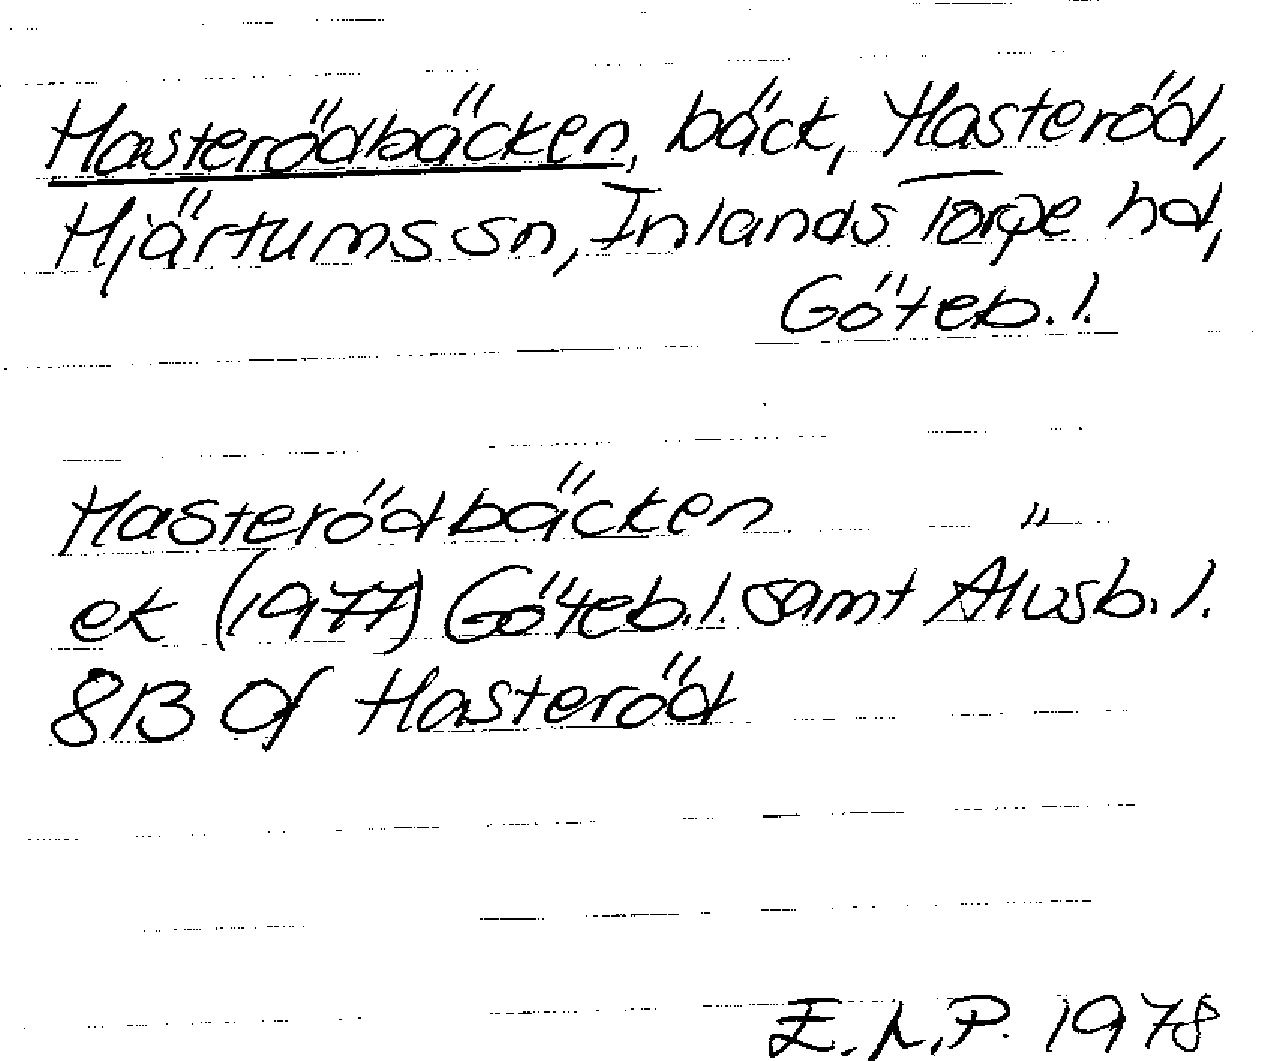 Hasterödbäcken, bäck, Hasteröd,
Hjärtums sn, Inlands Torpe hd,
Göteb. l.
Hasterödbäcken "
ek (1977) Göteb. l. samt Älvsb. l.
8B Of Hasteröd
E. N. P. 1978